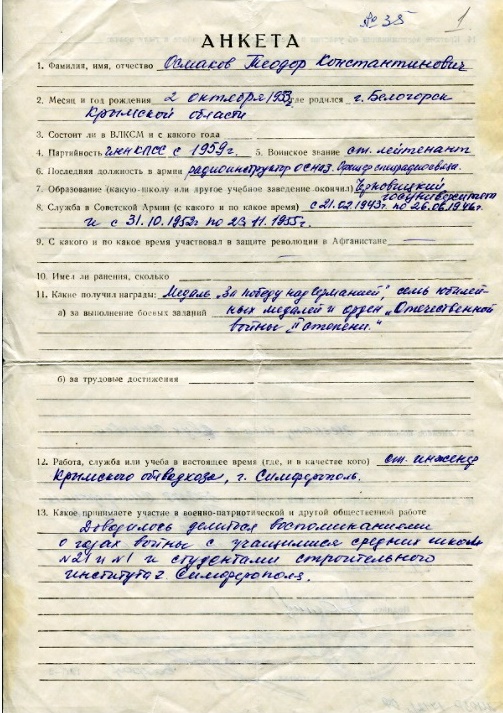 № 35
1
АНКЕТА
1. Фамилия, имя, отчество Осмаков Теодор Константинович
2. Месяц и год рождения 2 октября где родился г. Белогорск
Крымской области
3. Состоит ли в ВЛКСМ и с какого года
4. Партийность член КПСС с 1959 г. 5. Воинское звание ст. лейтенант
6. Последняя должность в армии радиоинструктор ОСНАЗ.
7. Образование (какую школу или другое учебное заведение окончил) Черновицкий
госуниверситет
8. Служба в Советской Армии (с какого и по какое время) с 21.02.1943г. по 26.06.1946г.
и с 31.10.1952г по 23.11.1955г.
9. С какого и по какое время участвовал в защите революции в Афганистане —
10. Имел ли ранения, сколько
11. Какие получил награды: Медаль „За победу над Германией", семь юбилей-
а) за выполнение боевых заданий ных медалей и орден „Отечественной
войны II степени."
б) за трудовые достижения
12. Работа, служба или учеба в настоящее время (где, и в качестве кого) ст. инженер
Крымского облводхоза, г. Симферополь.
13. Какое принимаете участие в военно-патриотической и другой общественной работе
Доводилось делится воспоминаниями
о годах войны с учащимися средних школ
N21 и N1 и студентами строительного
института г. Симферополя.